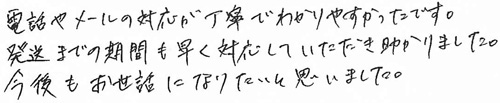 電話やメールの対応が丁寧でわかりやすかったです。
発送までの期間も早く対応していただき助かりました。
今後もお世話になりたいと思いました。